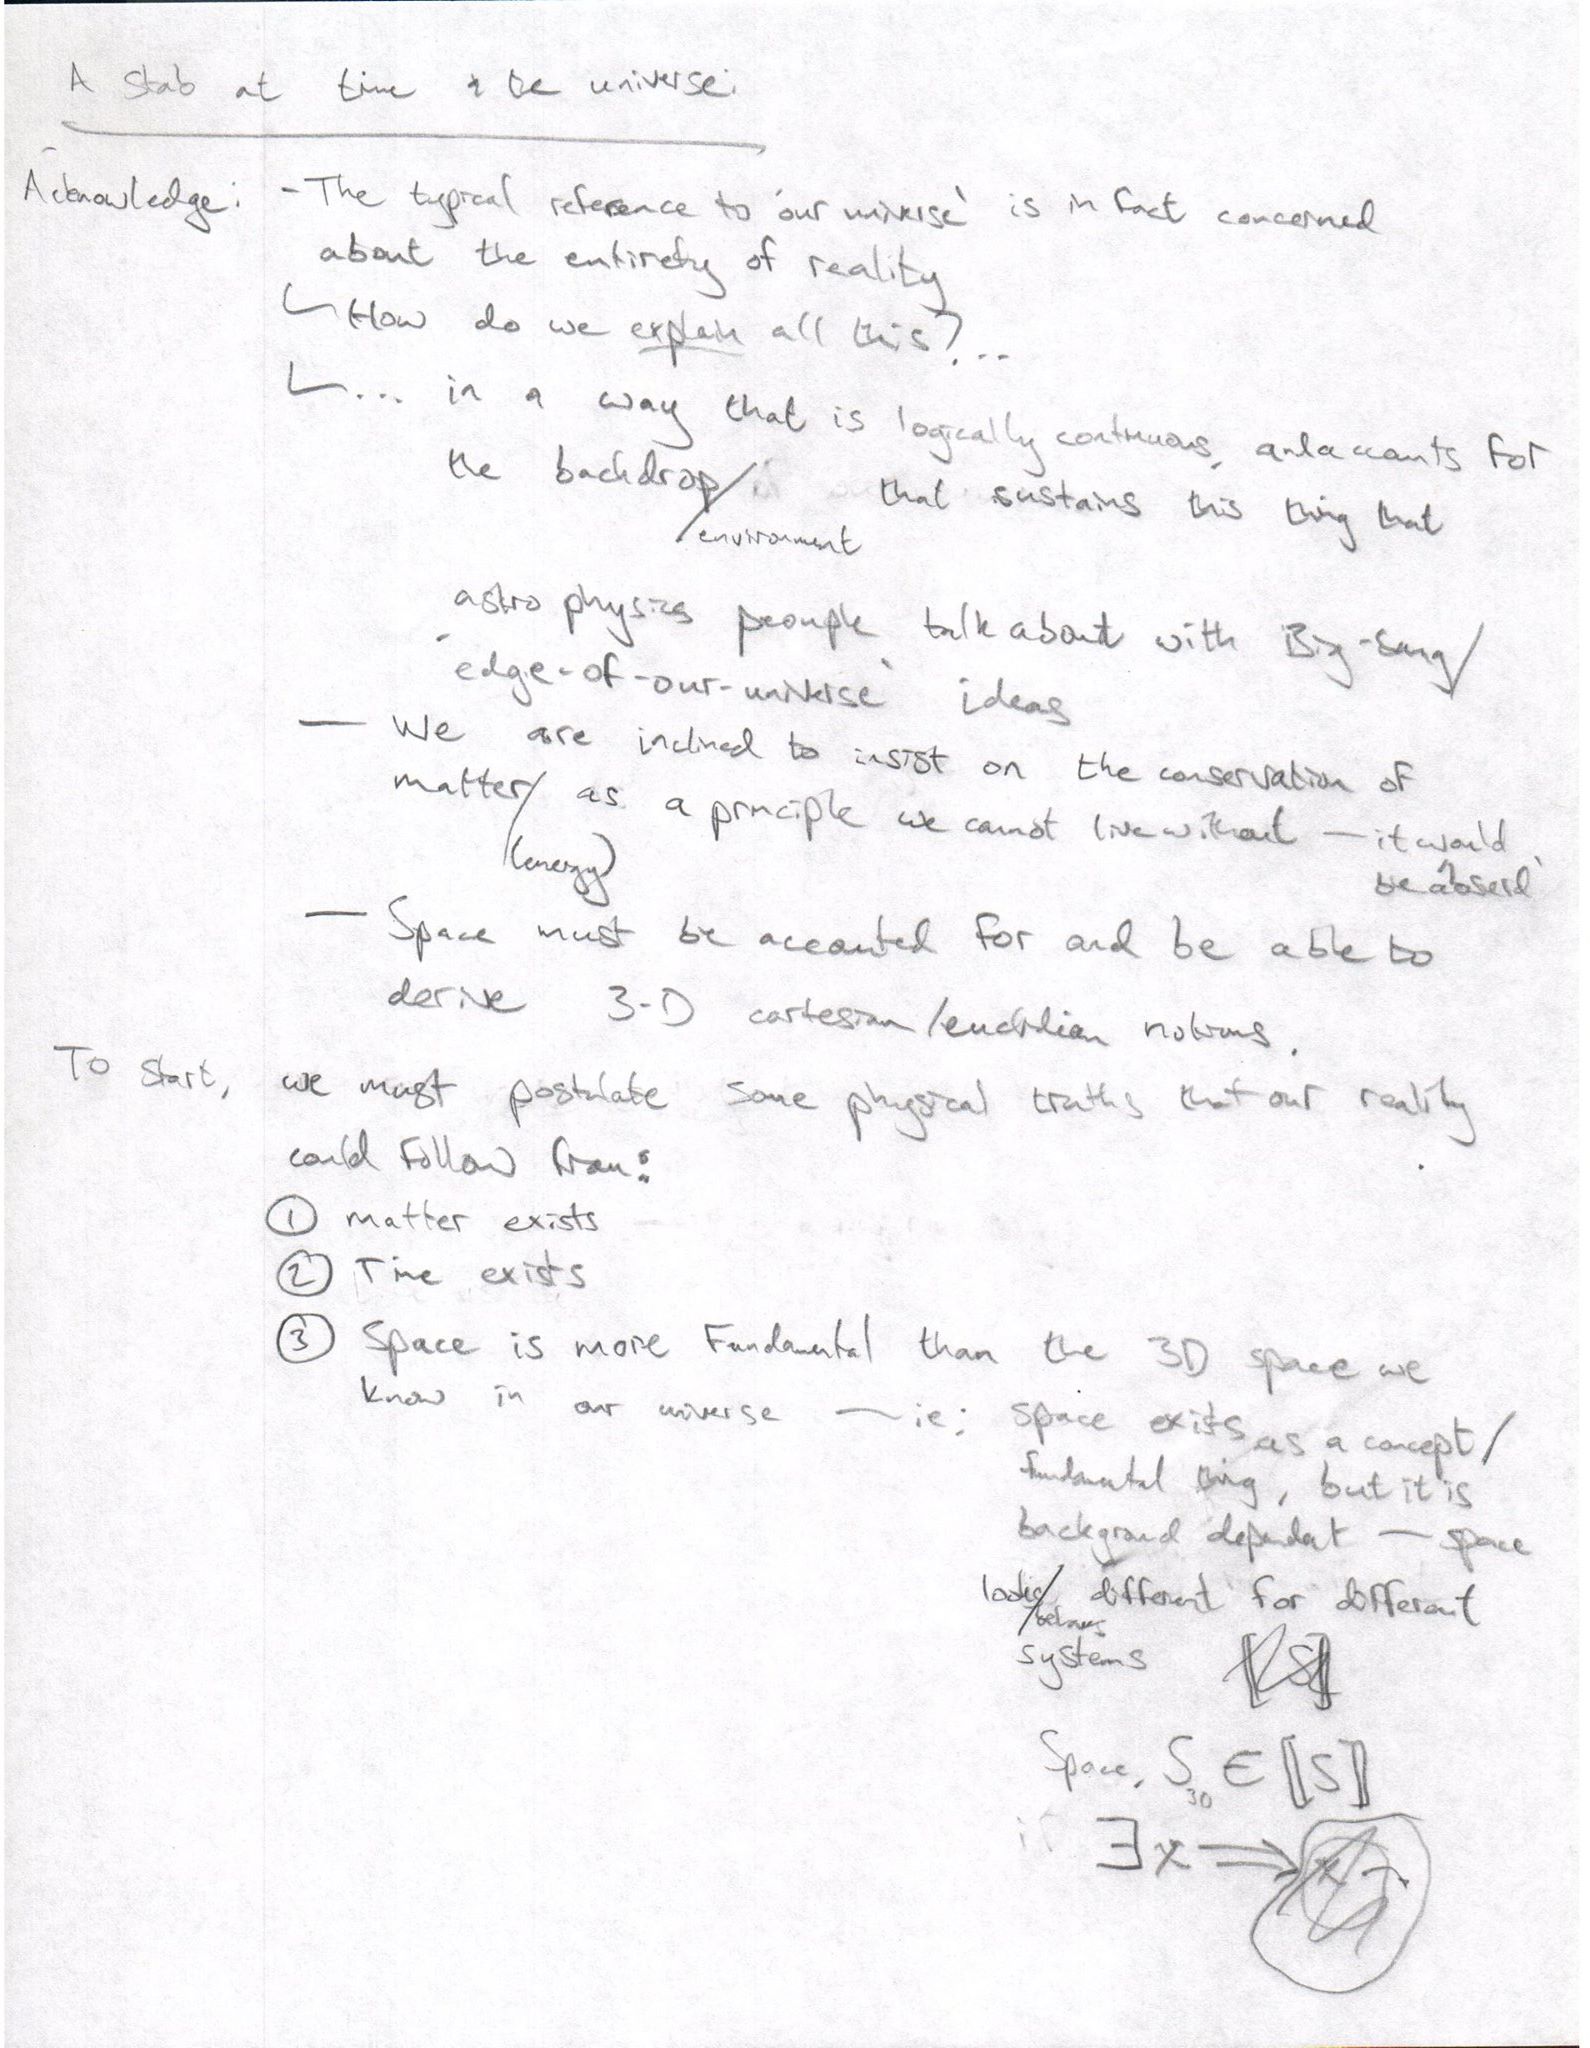 A stab at time & the universe:
Acknowledge: - The typical reference to 'our universe' is in fact concerned
about the entirety of reality
How do we explain all this?...
... in a way that is logically continuous, and accounts for
the backdrop/environment that sustains this thing that
astro physics peouple talk about with Big-bang/
'edge-of-our-universe' ideas
— We are inclined to insist on the conservation of
matter/(energy) as a principle we cannot live without — it would
be 'abserd'
— Space must be accounted for and be able to
derive 3-D cartesian/euclidian notions.
To start, we must postulate some physical truths that our reality
could follow from:
① matter exists
② Time exists
③ Space is more Fundamental than the 3D space we
know in our universe — ie: space exists as a concept/
fundamental thing, but it is
background dependat — space
looks/behaves different for different
systems
Space, S₃D ∈ ⟦S⟧
if ∃x ⇒